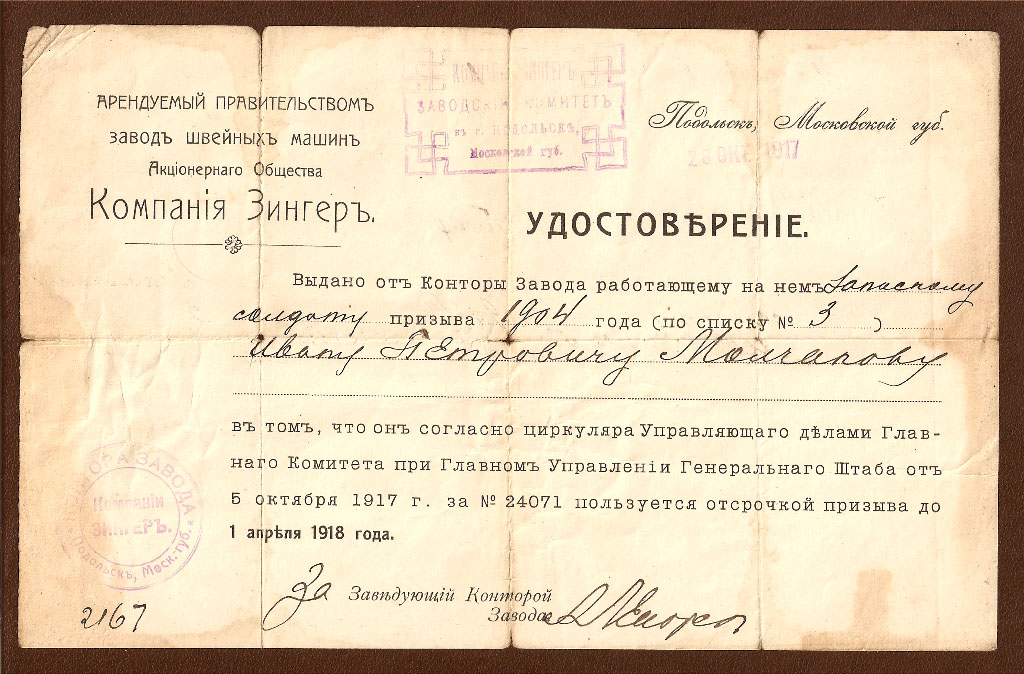 АРЕНДУЕМЫЙ ПРАВИТЕЛЬСТВОМЪ
ЗАВОДЪ ШВЕЙНЫХЪ МАШИНЪ
Акціонернаго Общества
Компанія Зингеръ.
КОМПАНІЯ ЗИНГЕРЪ
ЗАВОДСКІЙ КОМИТЕТЪ
въ г. Подольскѣ,
Московской губ.
Подольскъ, Московской губ.
УДОСТОВѢРЕНІЕ.
Выдано отъ Конторы Завода работающему на немъ запасному
солдату призыва 1904 года (по списку № 3 )
Ивану Петровичу Молчанову
въ томъ, что онъ согласно циркуляра Управляющаго дѣлами Глав-
наго Комитета при Главномъ Управленіи Генеральнаго Штаба отъ
5 октября 1917 г. за № 24071 пользуется отсрочкой призыва до
1 апрѣля 1918 года.
КОНТОРА ЗАВОДА
Компаніи
ЗИНГЕРЪ.
Подольскъ, Моск. губ.
За Завѣдующій Конторой
Завода
2167